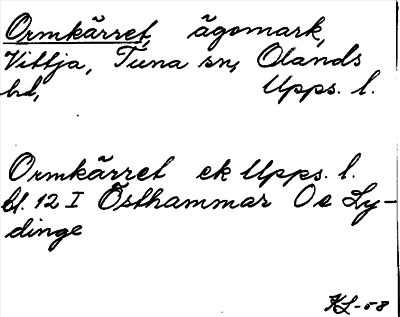 Ormkärret, ägomark,
Vittja, Tuna sn, Olands
hd, Upps. l.
Ormkärret ek Upps. l.
bl. 12 I Östhammar Oe Ly-
dinge
KL-58